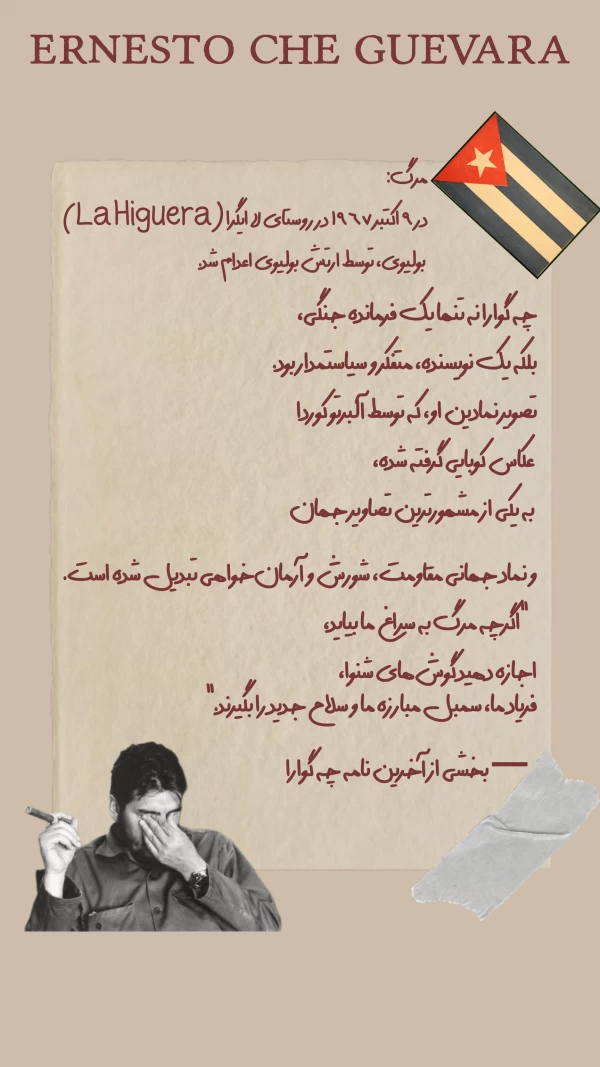 ERNESTO CHE GUEVARA
مرگ:
در ۹ اکتبر ۱۹٦۷ در روستای لا ایگرا (La Higuera)
بولیوی، توسط ارتش بولیوی اعدام شد.
چه گوارا نه تنها یک فرمانده جنگی،
بلکه یک نویسنده، متفکر و سیاستمدار بود.
تصویر نمادین او، که توسط آلبرتو کوردا
عکاس کوبایی گرفته شده،
به یکی از مشهورترین تصاویر جهان
و نماد جهانی مقاومت، شورش و آرمان خواهی تبدیل شده است.
"اگرچه مرگ به سراغ ما بیاید،
اجازه دهید گوش های شنوا،
فریاد ما، سمبل مبارزه ما و سلاح جدید را بگیرند."
— بخشی از آخرین نامه چه گوارا